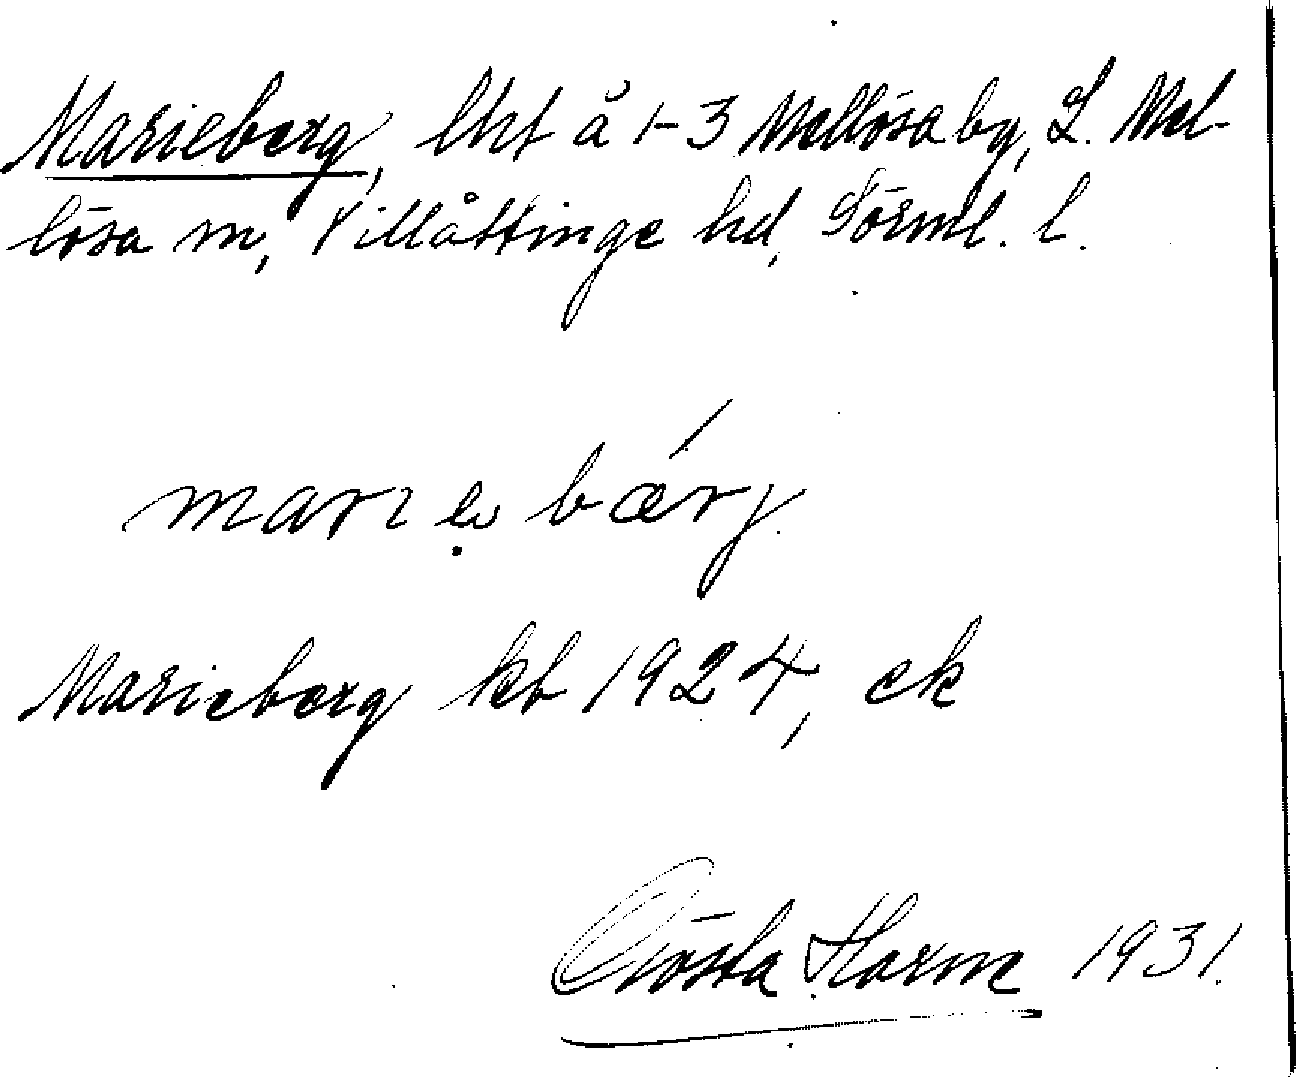 Marieberg, lht å 1-3 Mellösa by, L. Mel-
lösa sn, Villåttinge hd, Sörml. l.
Marieberg kb 1924, ek
Gösta Harm 1931.